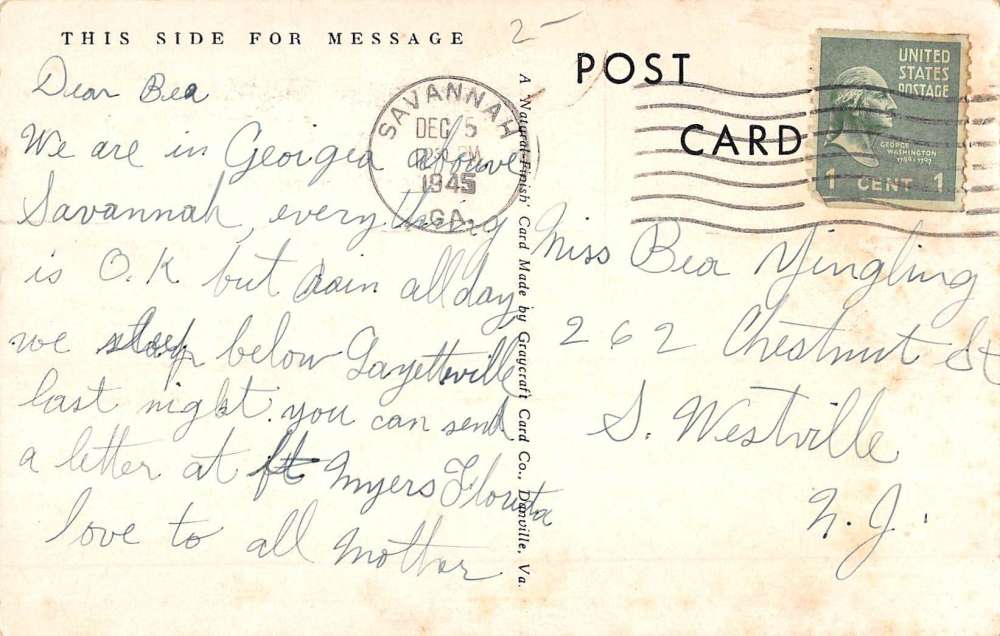 THIS SIDE FOR MESSAGE
2-
Dear Bea
We are in Georgia
Savannah, everything
is O.K but rain all day
we sleep below Fayetteville
last night. you can send
a letter at ft Myers Florida
love to all Mother
A 'Natural-Finish' Card Made by Graycraft Card Co., Danville, Va.
POST
CARD
SAVANNAH
DEC 5
PM
1945
GA.
UNITED
STATES
POSTAGE
GEORGE
WASHINGTON
1789-1797
1 CENT 1
Miss Bea Yingling
262 Chestnut St
S. Westville
N.J.